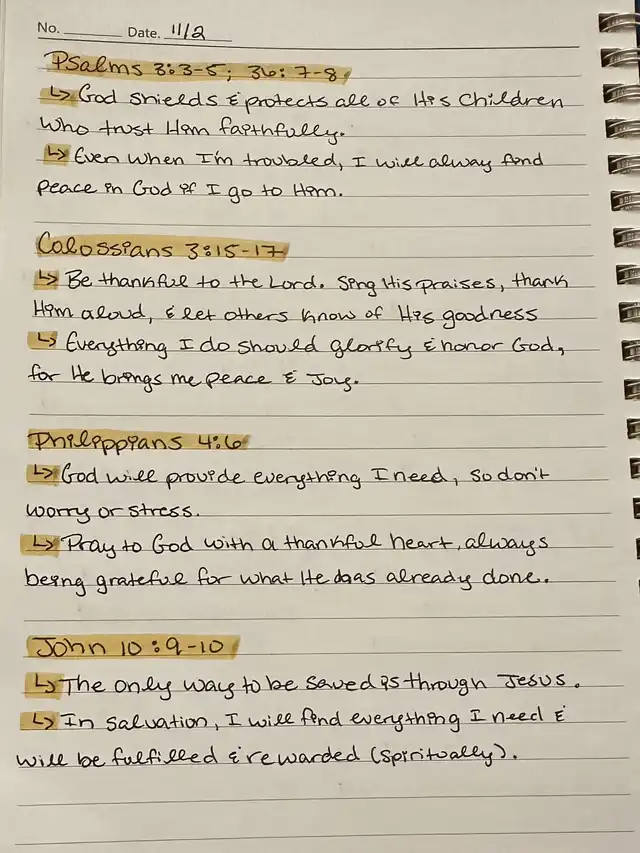 No. Date. 11/2
Psalms 3:3-5; 36:7-8
↳ God shields & protects all of His children
who trust Him faithfully.
↳ Even when I'm troubled, I will alway find
peace in God if I go to Him.
Colossians 3:15-17
↳ Be thankful to the Lord. Sing His praises, thank
Him aloud, & let others know of His goodness
↳ Everything I do should glorify & honor God,
for He brings me peace & Joy.
Philippians 4:6
↳ God will provide everything I need, so don't
worry or stress.
↳ Pray to God with a thankful heart, always
being grateful for what He has already done.
John 10:9-10
↳ The only way to be saved is through Jesus.
↳ In salvation, I will find everything I need &
will be fulfilled & rewarded (spiritually).